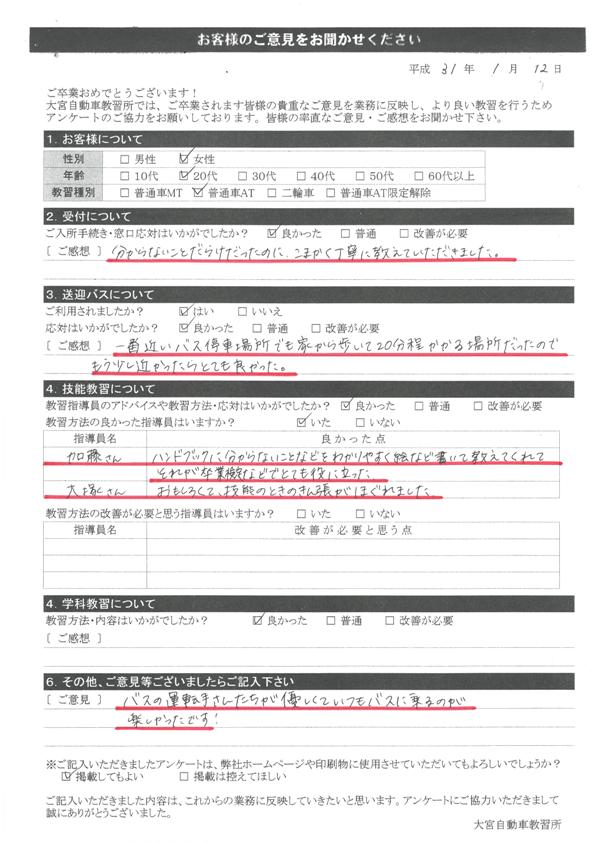 お客様のご意見をお聞かせください
平成 31 年 1 月 12 日
ご卒業おめでとうございます！
大宮自動車教習所では、ご卒業されます皆様の貴重なご意見を業務に反映し、より良い教習を行うため
アンケートのご協力をお願いしております。皆様の率直なご意見・ご感想をお聞かせ下さい。
1. お客様について
性別 □ 男性 ☑ 女性
年齢 □ 10代 ☑ 20代 □ 30代 □ 40代 □ 50代 □ 60代以上
教習種別 □ 普通車MT ☑ 普通車AT □ 二輪車 □ 普通車AT限定解除
2. 受付について
ご入所手続き・窓口応対はいかがでしたか？ ☑ 良かった □ 普通 □ 改善が必要
〔 ご感想 〕 分からないことだらけだったのに、こまかく丁寧に教えていただきました。
3. 送迎バスについて
ご利用されましたか？ ☑ はい □ いいえ
応対はいかがでしたか？ ☑ 良かった □ 普通 □ 改善が必要
〔 ご感想 〕 一番近いバス停車場所でも家から歩いて20分程かかる場所だったので
もう少し近かったらとても良かった。
4. 技能教習について
教習指導員のアドバイスや教習方法・応対はいかがでしたか？ ☑ 良かった □ 普通 □ 改善が必要
教習方法の良かった指導員はいますか？ ☑ いた □ いない
指導員名 良かった点
加藤さん ハンドブックに分からないことなどをわかりやすく絵など書いて教えてくれて
それが卒業検などでとても役に立った。
大塚さん おもしろくて、技能のときのきん張がほぐれました。
教習方法の改善が必要と思う指導員はいますか？ □ いた □ いない
指導員名 改善が必要と思う点
4. 学科教習について
教習方法・内容はいかがでしたか？ ☑ 良かった □ 普通 □ 改善が必要
〔 ご感想 〕
6. その他、ご意見等ございましたらご記入下さい
〔 ご意見 〕 バスの運転手さんたちが優しくていつもバスに乗るのが
楽しかったです！
※ご記入いただきましたアンケートは、弊社ホームページや印刷物に使用させていただいてもよろしいでしょうか？
☑ 掲載してもよい □ 掲載は控えてほしい
ご記入いただきました内容は、これからの業務に反映していきたいと思います。アンケートにご協力いただきまして
誠にありがとうございました。
大宮自動車教習所